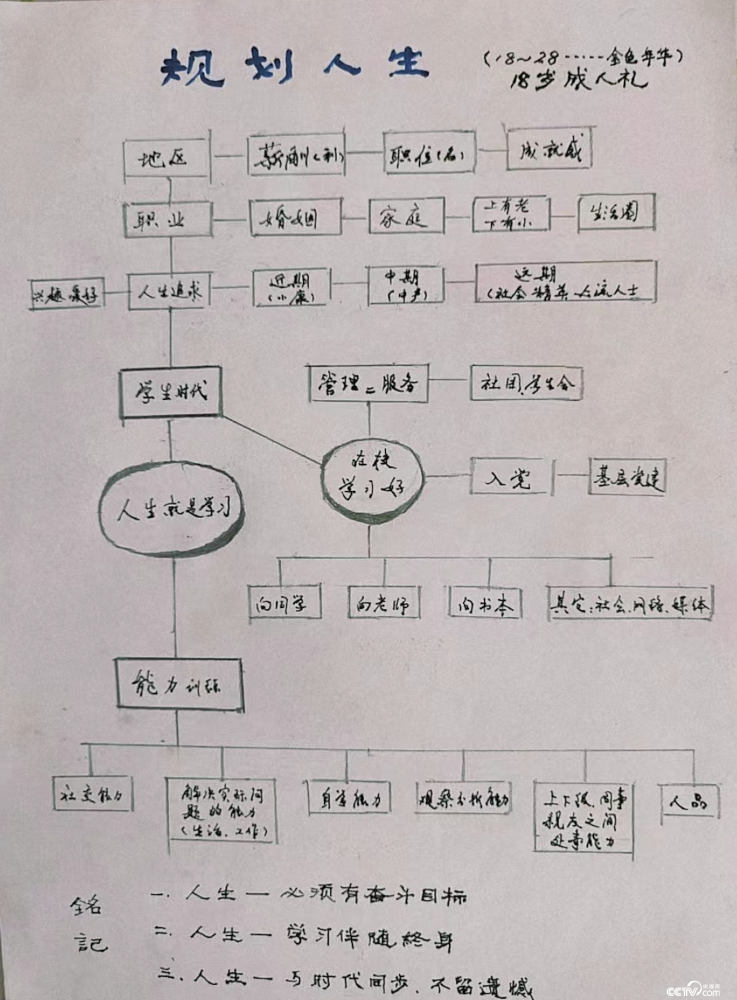 规划人生
(18~28……金色年华)
18岁成人礼
地区 薪酬(利) 职位(名) 成就感
职业 婚姻 家庭 上有老 生活圈
下有小
兴趣爱好 人生追求 近期 中期 远期
(小康) (中产) (社会精英、上流人士
学生时代 管理=服务 社团、学生会
在校
学习好 入党 基层党建
人生就是学习
向同学 向老师 向书本 其它:社会、网络、媒体
能力训练
社交能力 解决实际问 自学能力 观察分析能力 上下级、同事 人品
题的能力 亲友之间
(生活、工作) 处事能力
銘 一、人生一必须有奋斗目标
記 二、人生一学习伴随終身
三、人生一与时代同步、不留遗憾
CCTV.com